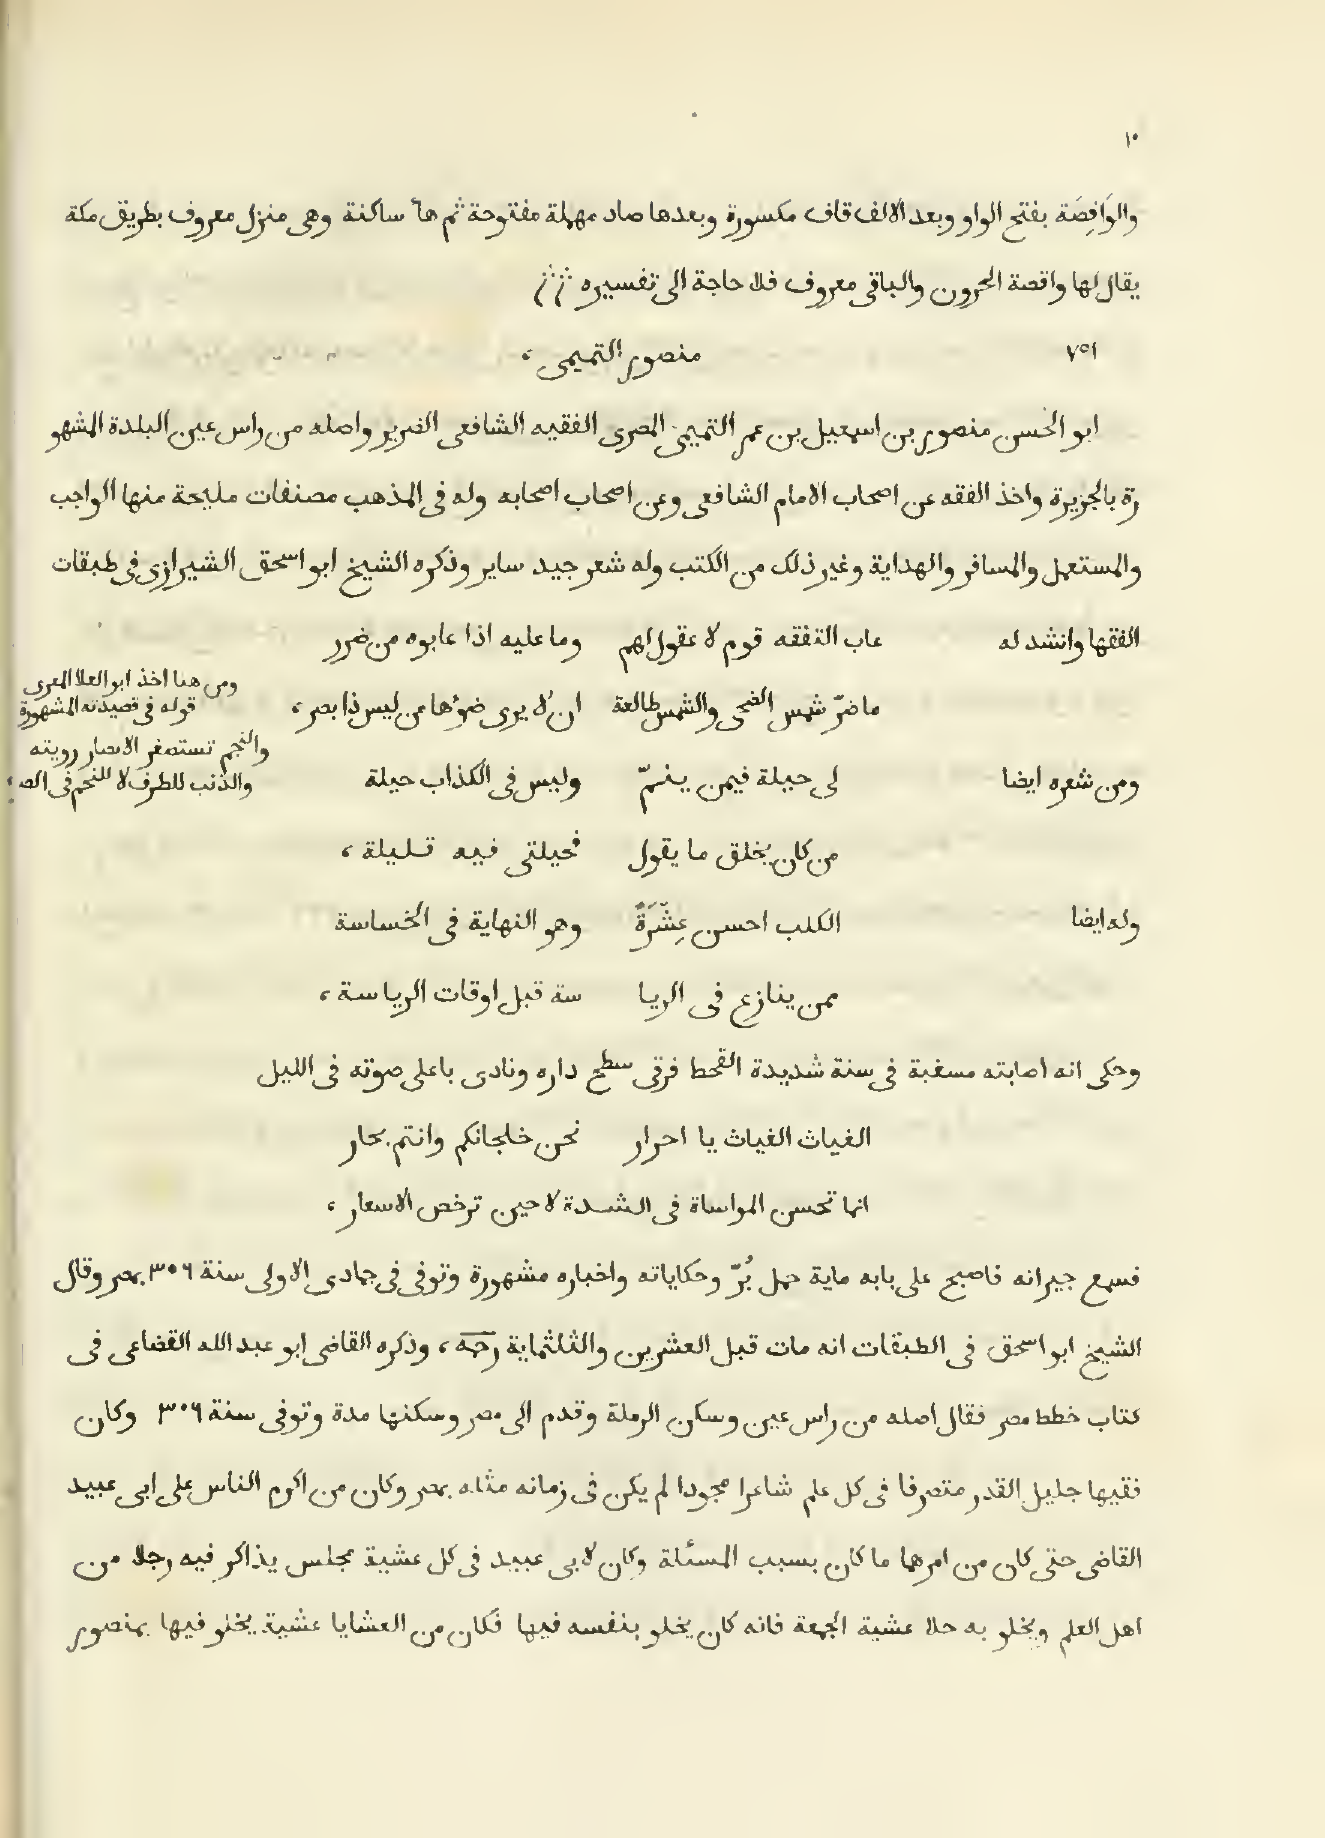 ١٠
والوَاقِصَة بفتح الواو وبعد الالف قاف مكسورة وبعدها صاد مهملة مفتوحة ثم هآ ساكنة وهى منزل معروف بطريق مكة
يقال لها واقصة الحزون والباقى معروف فلا حاجة الى تفسيره
٧٥١
منصور التميمى ،
ابو الحَسن منصور بن اسمعيل بن عمر التميمى المصرى الفقيه الشافعى الضرير واصله من راس عين البلدة المشهو
رة بالجزيرة واخذ الفقه عن اصحاب الامام الشافعى وعن اصحاب اصحابه وله فى المذهب مصنفات مليحة منها الواجب
والمستعمل والمسافر والهداية وغير ذلك من الكتب وله شعر جيد ساير وذكره الشيخ ابو اسحق الشيرازى فى طبقات
الفقها وانشد له عاب التفقه قوم لا عقول لهم وما عليه اذا عابوه من ضرر
ما ضرّ شمس الضحى والشمس طالعة ان لا يرى ضوُها من ليس ذا بصر ،
ومن هنا اخذ ابو العلا المعرى
قوله فى قصيدته المشهورة
والنجم تستصغر الابصار رويته
والذنب للطرف لا للنجم فى الصـ
ومن شعره ايضا لى حيلة فيمن ينمّ وليس فى الكذاب حيلة
من كان يخلق ما يقول فحيلتى فيه قليلة ،
وله ايضا الكلب احسن عِشْرَةً وهو النهاية فى الخساسة
ممن ينازع فى الريا سة قبل اوقات الرياسة ،
وحكى انه اصابته مسغبة فى سنة شديدة القحط فرقى سطح داره ونادى باعلى صوته فى الليل
الغياث الغياث يا احرار نحن خلجانكم وانتم بحار
انما تحسن المواساة فى الشدة لا حين ترخص الاسعار ،
فسمع جيرانه فاصبح على بابه ماية حمل بُرّ وحكاياته واخباره مشهورة وتوفى فى جمادى الاولى سنة ٣٠٦ بمصر وقال
الشيخ ابو اسحق فى الطبقات انه مات قبل العشرين والثلثماية رحه ، وذكره القاضى ابو عبد الله القضاعى فى
كتاب خطط مصر فقال اصله من راس عين وسكن الرملة وقدم الى مصر وسكنها مدة وتوفى سنة ٣٠٦ وكان
فقيها جليل القدر متصرفا فى كل علم شاعرا مجودا لم يكن فى زمانه مثله بمصر وكان من اكرم الناس على ابى عبيد
القاضى حتى كان من امرهما ما كان بسبب المسئلة وكان لابى عبيد فى كل عشية مجلس يذاكر فيه رجلا من
اهل العلم ويخلو به خلا عشية الجمعة فانه كان يخلو بنفسه فيها فكان من العشايا عشية يخلو فيها بمنصور